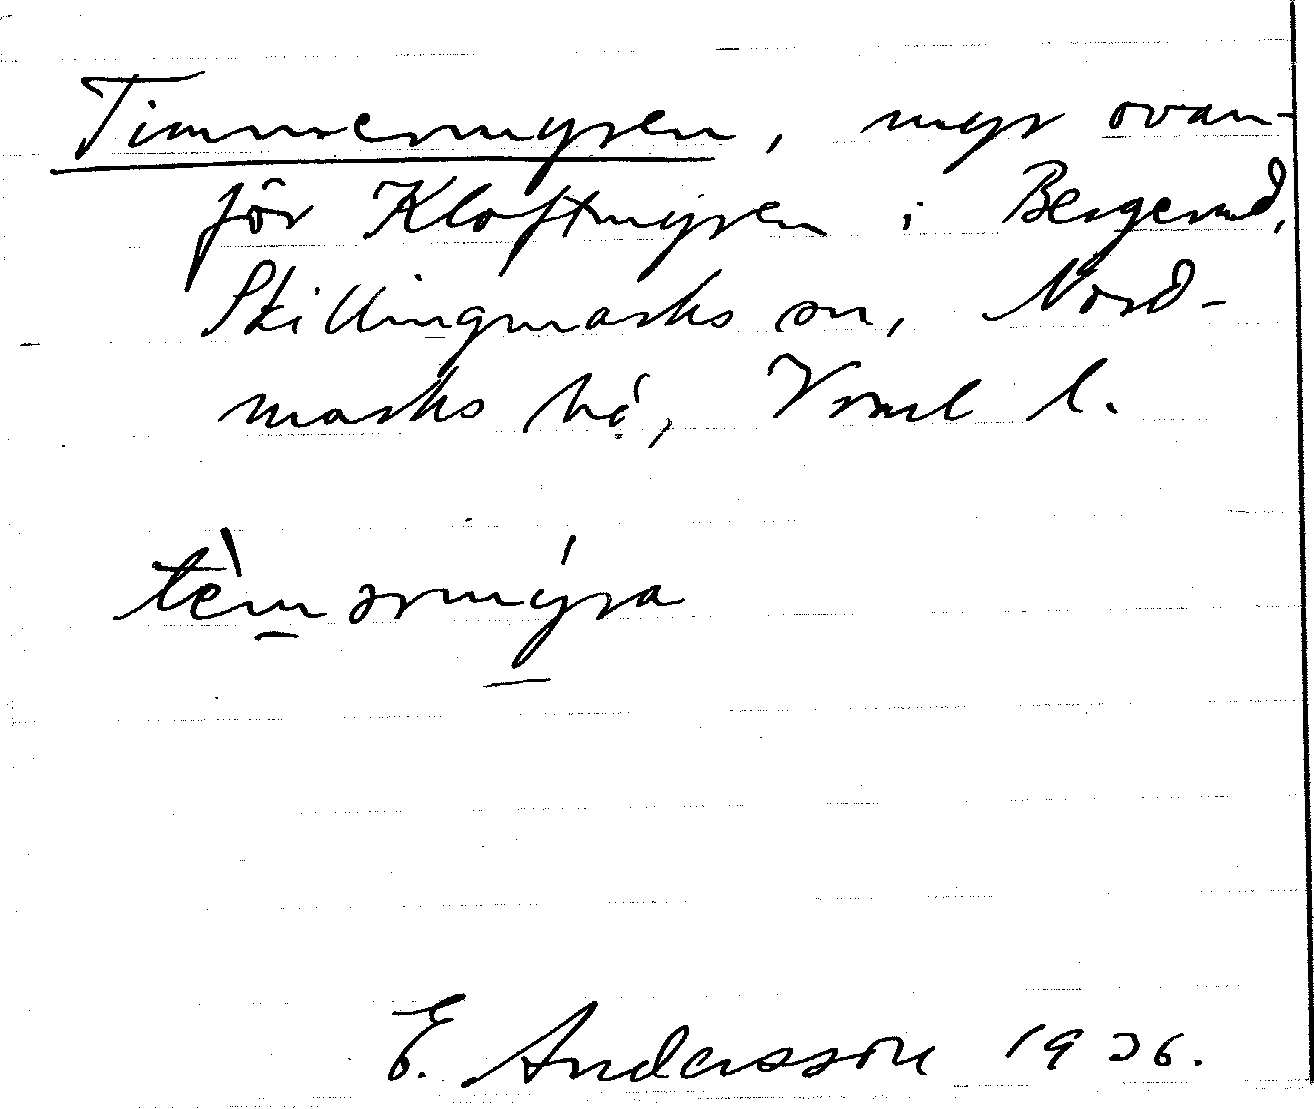 Timmermyren, myr ovan-
för Kloftmyren i Bergerud,
Skillingmarks sn, Nord-
marks hd, Vrml l.
tèmərmýra
E. Andersson 1936.